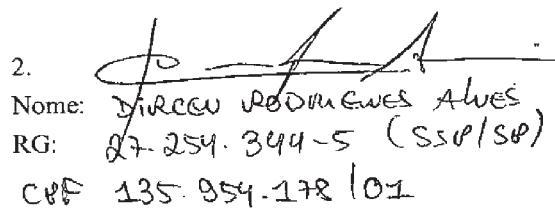 2.
Nome: DIRCEU RODRIGUES ALVES
RG: 27.254.344-5 (SSP/SP)
CPF 135.954.178/01